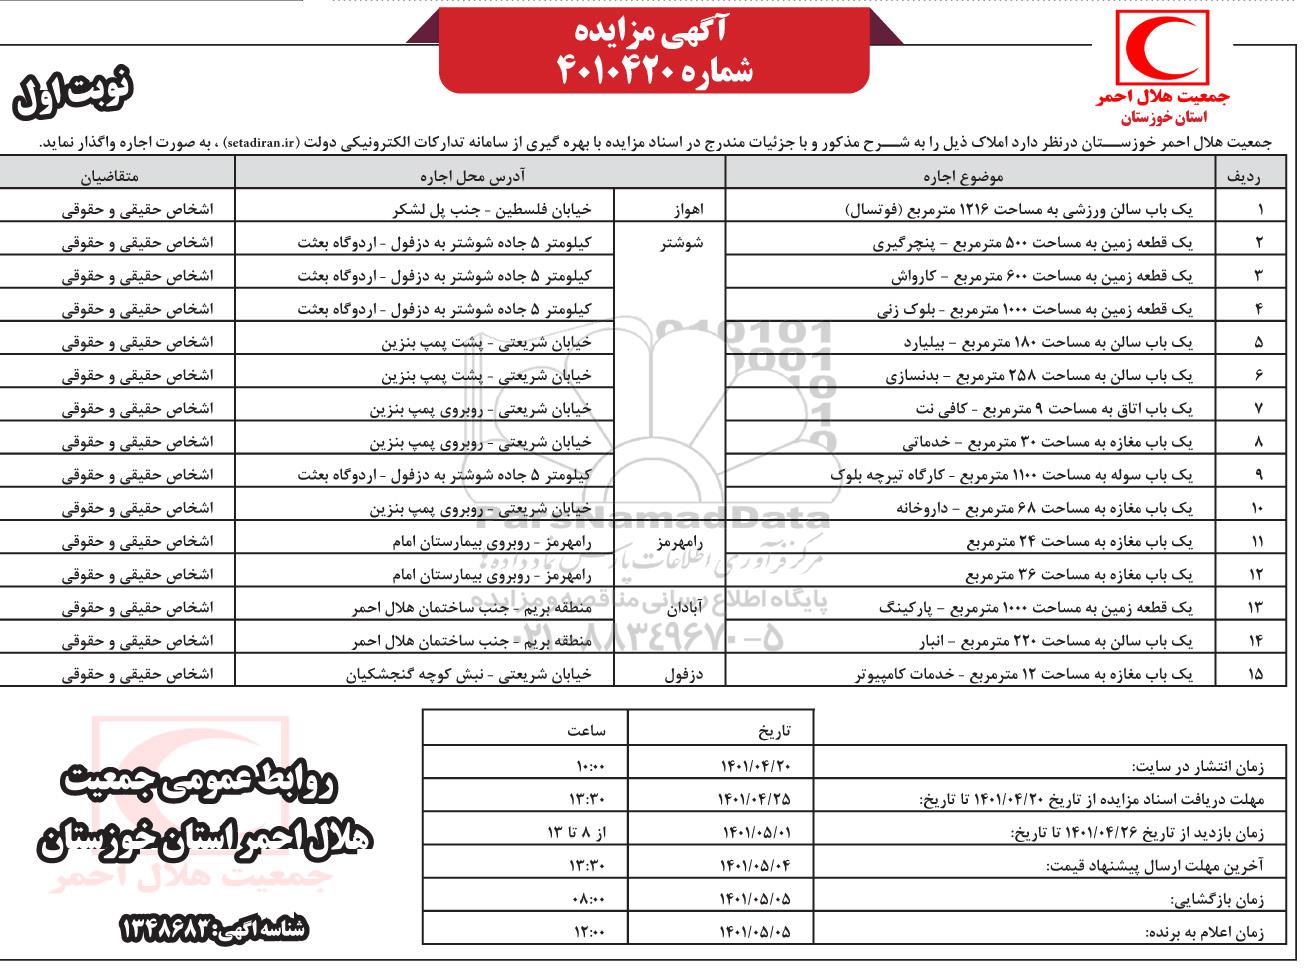 آگهی مزایده
شماره ۴۰۱۰۴۲۰
نوبت اول
جمعیت هلال احمر
استان خوزستان
جمعیت هلال احمر خوزستان درنظر دارد املاک ذیل را به شرح مذکور و با جزئیات مندرج در اسناد مزایده با بهره گیری از سامانه تدارکات الکترونیکی دولت (setadiran.ir) ، به صورت اجاره واگذار نماید.
ردیف موضوع اجاره آدرس محل اجاره متقاضیان
۱ یک باب سالن ورزشی به مساحت ۱۲۱۶ مترمربع (فوتسال) اهواز خیابان فلسطین - جنب پل لشکر اشخاص حقیقی و حقوقی
۲ یک قطعه زمین به مساحت ۵۰۰ مترمربع - پنچرگیری شوشتر کیلومتر ۵ جاده شوشتر به دزفول - اردوگاه بعثت اشخاص حقیقی و حقوقی
۳ یک قطعه زمین به مساحت ۶۰۰ مترمربع - کارواش کیلومتر ۵ جاده شوشتر به دزفول - اردوگاه بعثت اشخاص حقیقی و حقوقی
۴ یک قطعه زمین به مساحت ۱۰۰۰ مترمربع - بلوک زنی کیلومتر ۵ جاده شوشتر به دزفول - اردوگاه بعثت اشخاص حقیقی و حقوقی
۵ یک باب سالن به مساحت ۱۸۰ مترمربع - بیلیارد خیابان شریعتی - پشت پمپ بنزین اشخاص حقیقی و حقوقی
۶ یک باب سالن به مساحت ۲۵۸ مترمربع - بدنسازی خیابان شریعتی - پشت پمپ بنزین اشخاص حقیقی و حقوقی
۷ یک باب اتاق به مساحت ۹ مترمربع - کافی نت خیابان شریعتی - روبروی پمپ بنزین اشخاص حقیقی و حقوقی
۸ یک باب مغازه به مساحت ۳۰ مترمربع - خدماتی خیابان شریعتی - روبروی پمپ بنزین اشخاص حقیقی و حقوقی
۹ یک باب سوله به مساحت ۱۱۰۰ مترمربع - کارگاه تیرچه بلوک کیلومتر ۵ جاده شوشتر به دزفول - اردوگاه بعثت اشخاص حقیقی و حقوقی
۱۰ یک باب مغازه به مساحت ۶۸ مترمربع - داروخانه خیابان شریعتی - روبروی پمپ بنزین اشخاص حقیقی و حقوقی
۱۱ یک باب مغازه به مساحت ۲۴ مترمربع رامهرمز رامهرمز - روبروی بیمارستان امام اشخاص حقیقی و حقوقی
۱۲ یک باب مغازه به مساحت ۳۶ مترمربع رامهرمز - روبروی بیمارستان امام اشخاص حقیقی و حقوقی
۱۳ یک قطعه زمین به مساحت ۱۰۰۰ مترمربع - پارکینگ آبادان منطقه بریم - جنب ساختمان هلال احمر اشخاص حقیقی و حقوقی
۱۴ یک باب سالن به مساحت ۲۲۰ مترمربع - انبار منطقه بریم - جنب ساختمان هلال احمر اشخاص حقیقی و حقوقی
۱۵ یک باب مغازه به مساحت ۱۲ مترمربع - خدمات کامپیوتر دزفول خیابان شریعتی - نبش کوچه گنجشکیان اشخاص حقیقی و حقوقی
ParsNamadData
مرکز فرآوری اطلاعات پارس نماد داده ها
پایگاه اطلاع رسانی مناقصه و مزایده
۰۲۱-۸۸۳۴۹۶۷۰-۵
تاریخ ساعت
زمان انتشار در سایت: ۱۴۰۱/۰۴/۲۰ ۱۰:۰۰
مهلت دریافت اسناد مزایده از تاریخ ۱۴۰۱/۰۴/۲۰ تا تاریخ: ۱۴۰۱/۰۴/۲۵ ۱۳:۳۰
زمان بازدید از تاریخ ۱۴۰۱/۰۴/۲۶ تا تاریخ: ۱۴۰۱/۰۵/۰۱ از ۸ تا ۱۳
آخرین مهلت ارسال پیشنهاد قیمت: ۱۴۰۱/۰۵/۰۴ ۱۳:۳۰
زمان بازگشایی: ۱۴۰۱/۰۵/۰۵ ۰۸:۰۰
زمان اعلام به برنده: ۱۴۰۱/۰۵/۰۵ ۱۲:۰۰
روابط عمومی جمعیت
هلال احمر استان خوزستان
جمعیت هلال احمر
شناسه آگهی: ۱۳۴۸۶۸۳